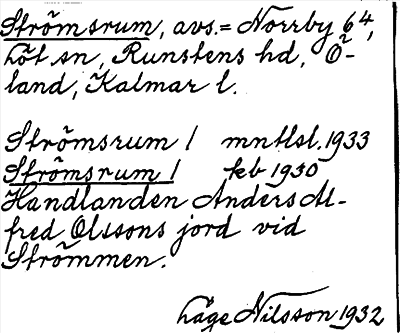 Strömsrum, avs. = Norrby 6²⁴,
Löt sn, Runstens hd, Ö-
land, Kalmar l.
Strömsrum 1 mntlsl. 1933
Strömsrum 1 kb 1930
Handlanden Anders Al-
fred Olssons jord vid
Strömmen.
Låge Nilsson 1932